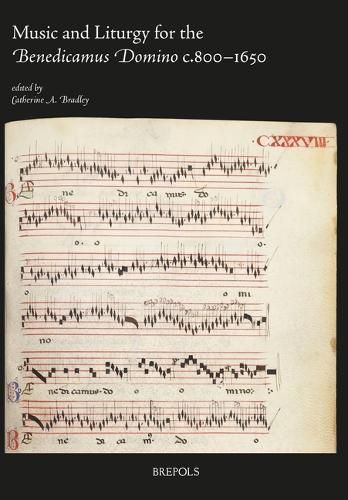 Music and Liturgy for the
Benedicamus Domino c.800–1650
edited by
Catherine A. Bradley
·CXXXVIII·
Be ne di ca mus do
o o o
o o mi
no
Be ne di camus do o o mino
Be ne di ca m9 Do o
BREPOLS